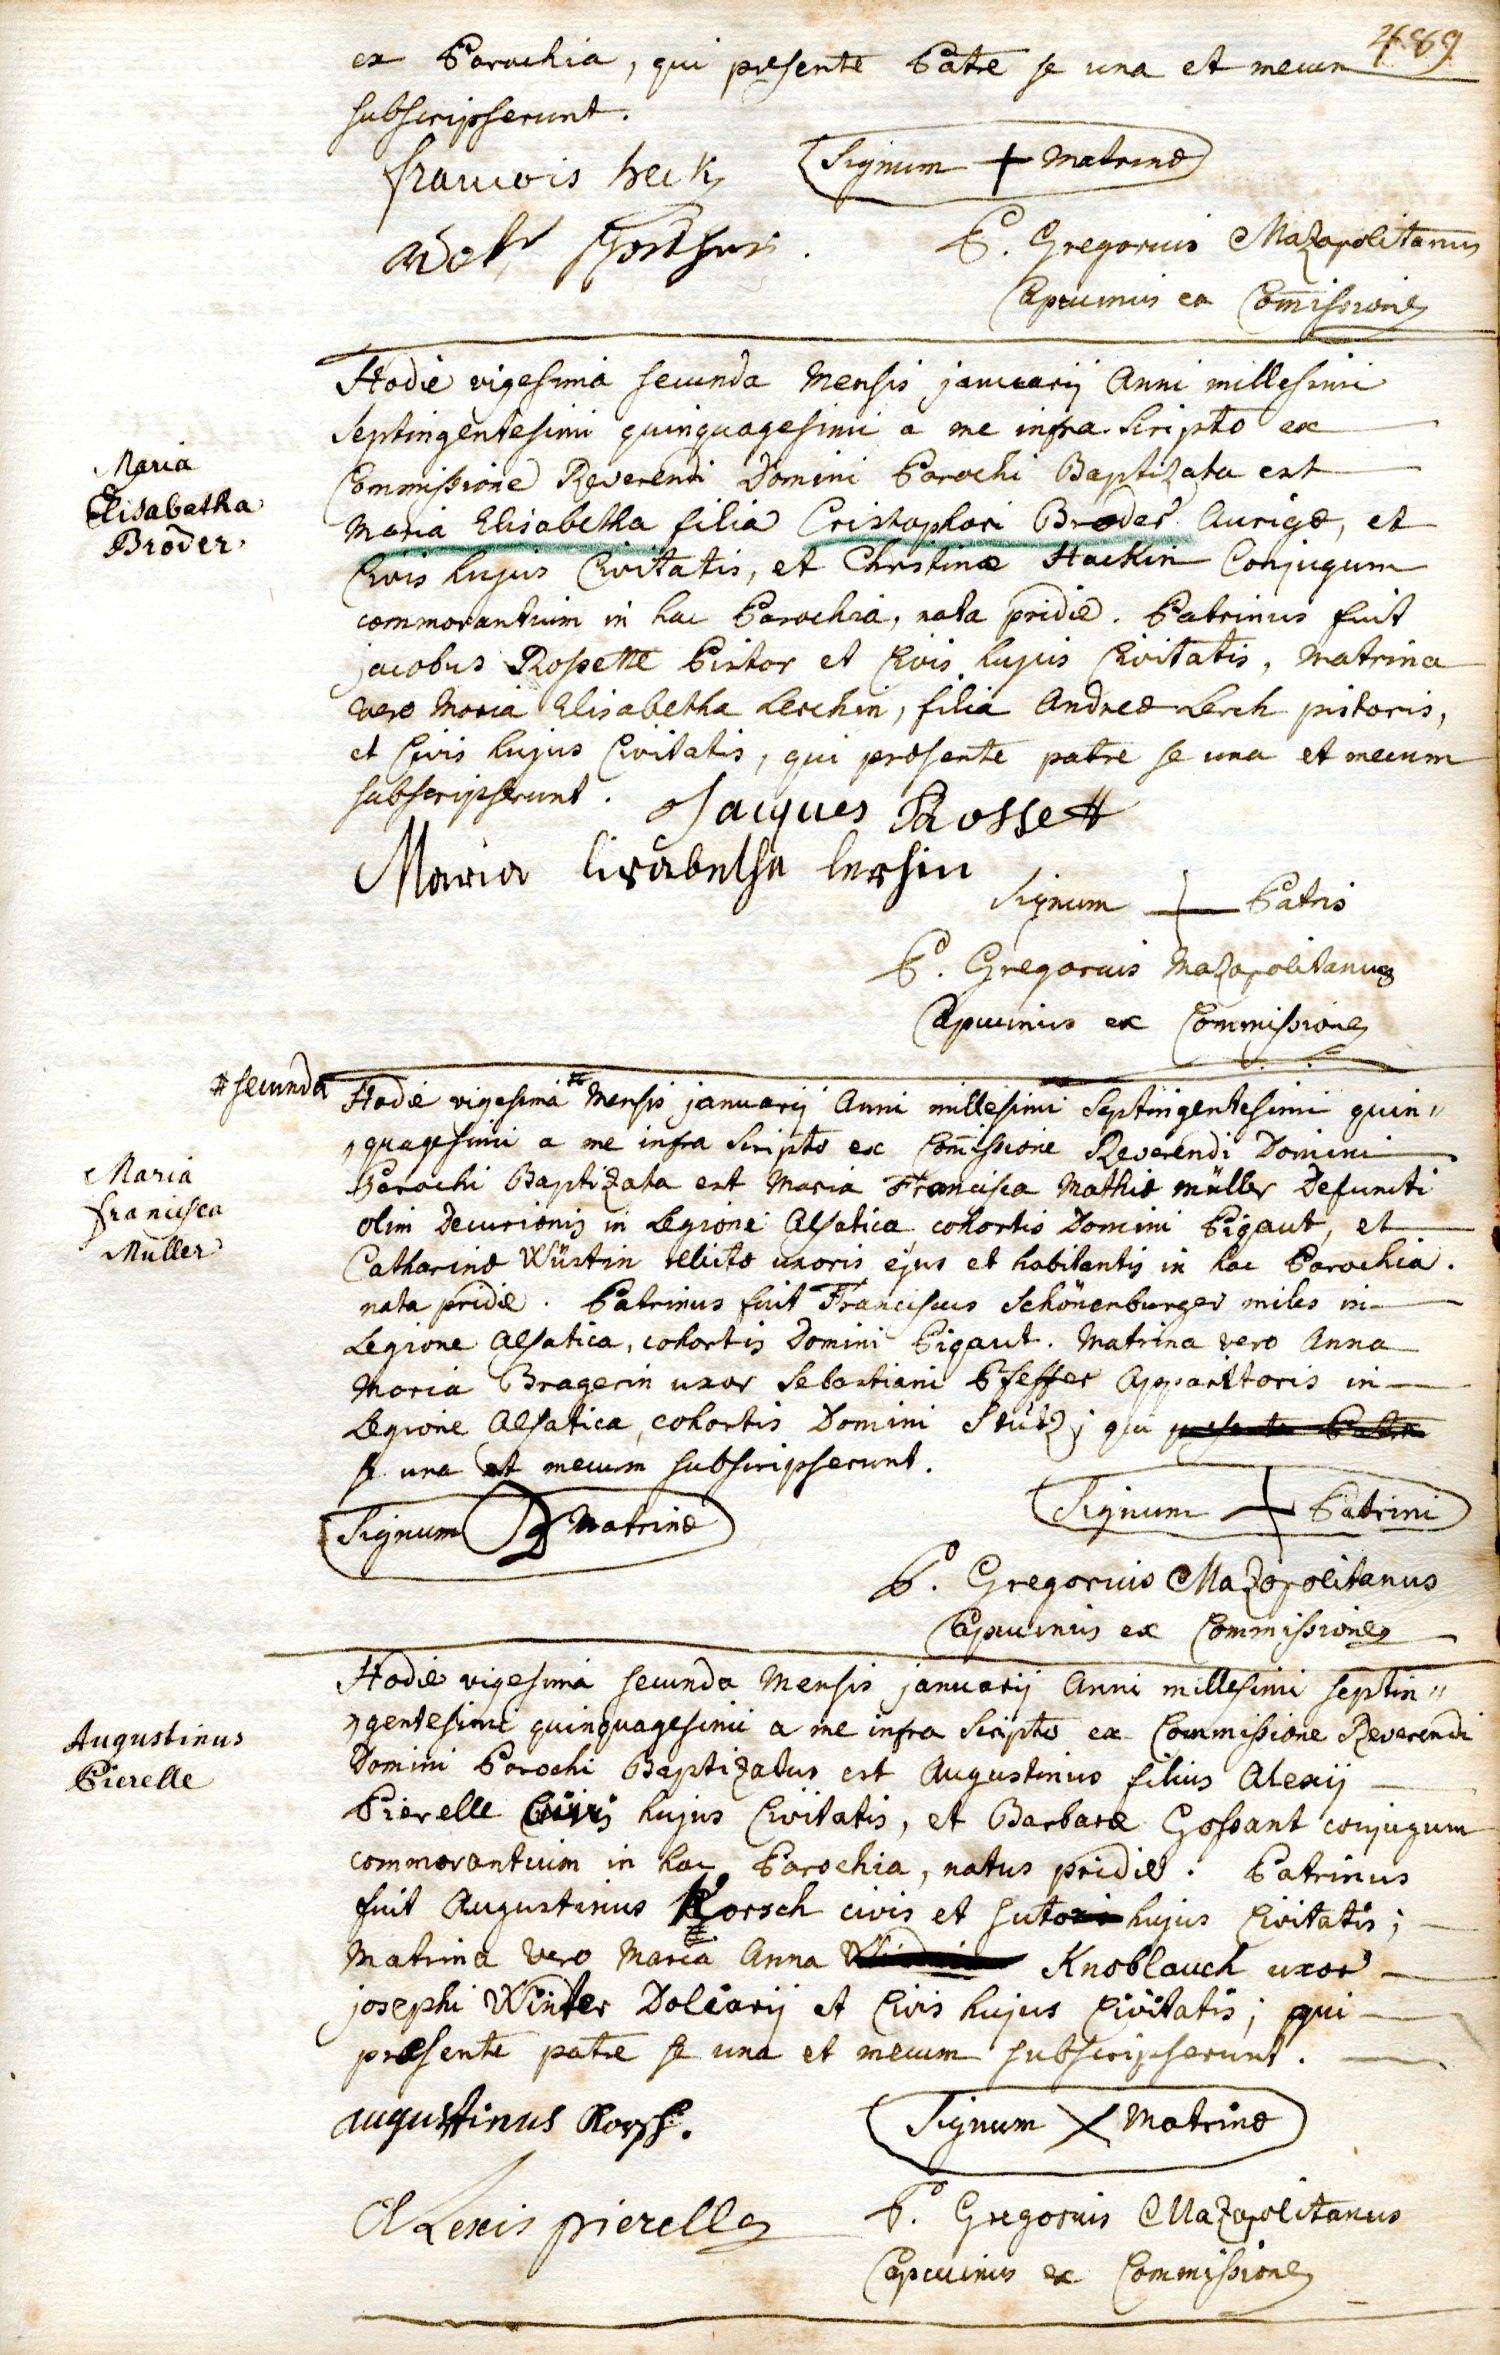 489
ex Parochia, qui presente Patre se una et mecum
subscripserunt.
francois heck Signum + Matrinæ
P. Gregorius Mazopolitanus
Capucinus ex Com̄issione
Hodie vigesima secunda Mensis januarij Anni millesimi
Septingentesimi quinquagesimi a me infra Scripto ex
Commissione Reverendi Domini Parochi Baptizata est
Maria
Elisabetha
Bröder.
Maria Elisabetha filia Cristophori Broder Aurigæ, et
Civis hujus Civitatis, et Christinæ Hackin Conjugum
commorantium in hac Parochia, nata pridie. Patrinus fuit
jacobus Rossette Pistor et Civis hujus Civitatis, Matrina
vero Maria Elisabetha Lerchin, filia Andreæ Lerch pistoris,
et Civis hujus Civitatis, qui præsente patre se una et mecum
subscripserunt. Jacques Rossett
Maria lisabetha lershin
Signum + Patris
P. Gregorius Mazopolitanus
Capucinus ex Commissione
# secunda
Hodie vigesima # Mensis januarij Anni millesimi Septingentesimi quin„
„quagesimi a me infra Scripto ex Com̄issione Reverendi Domini
Maria
francisca
Muller
Parochi Baptizata est Maria Francisca Mathiæ müller Defuncti
olim Decurionis in Legione Alsatica cohortis Domini Pigaut, et
Catharinæ Wüstin relictæ uxoris ejus et habitantis in hac Parochia.
nata pridie. Patrinus fuit Franciscus Schönenburger miles in
Legione Alsatica, cohortis Domini Pigaut. Matrina vero Anna
Maria Bragerin uxor Sebastiani Pfeffer Apparitoris in
Legione Alsatica, cohortis Domini Stütz; qui presente Patre
se una et mecum subscripserunt.
Signum Matrinæ Signum + Patrini
P. Gregorius Mazopolitanus
Capucinus ex Commissione
Hodie vigesima secunda Mensis januarij Anni millesimi septin„
„gentesimi quinquagesimi a me infra Scripto ex Commissione Reverendi
Augustinus
Pierelle
Domini Parochi Baptizatus est Augustinus filius Alexij
Pierelle Civis hujus Civitatis, et Barbaræ Gossant conjugum
commorantium in hac Parochia, natus pridie. Patrinus
fuit Augustinus Korsch civis et sutor hujus Civitatis;
Matrina vero Maria Anna Knoblauch uxor
josephi Winter Doliarij et Civis hujus Civitatis; qui
præsente patre se una et mecum subscripserunt.
augustinus Korsh. Signum X Matrinæ
ALexis pierelle P. Gregorius Mazopolitanus
Capucinus ex Commissione